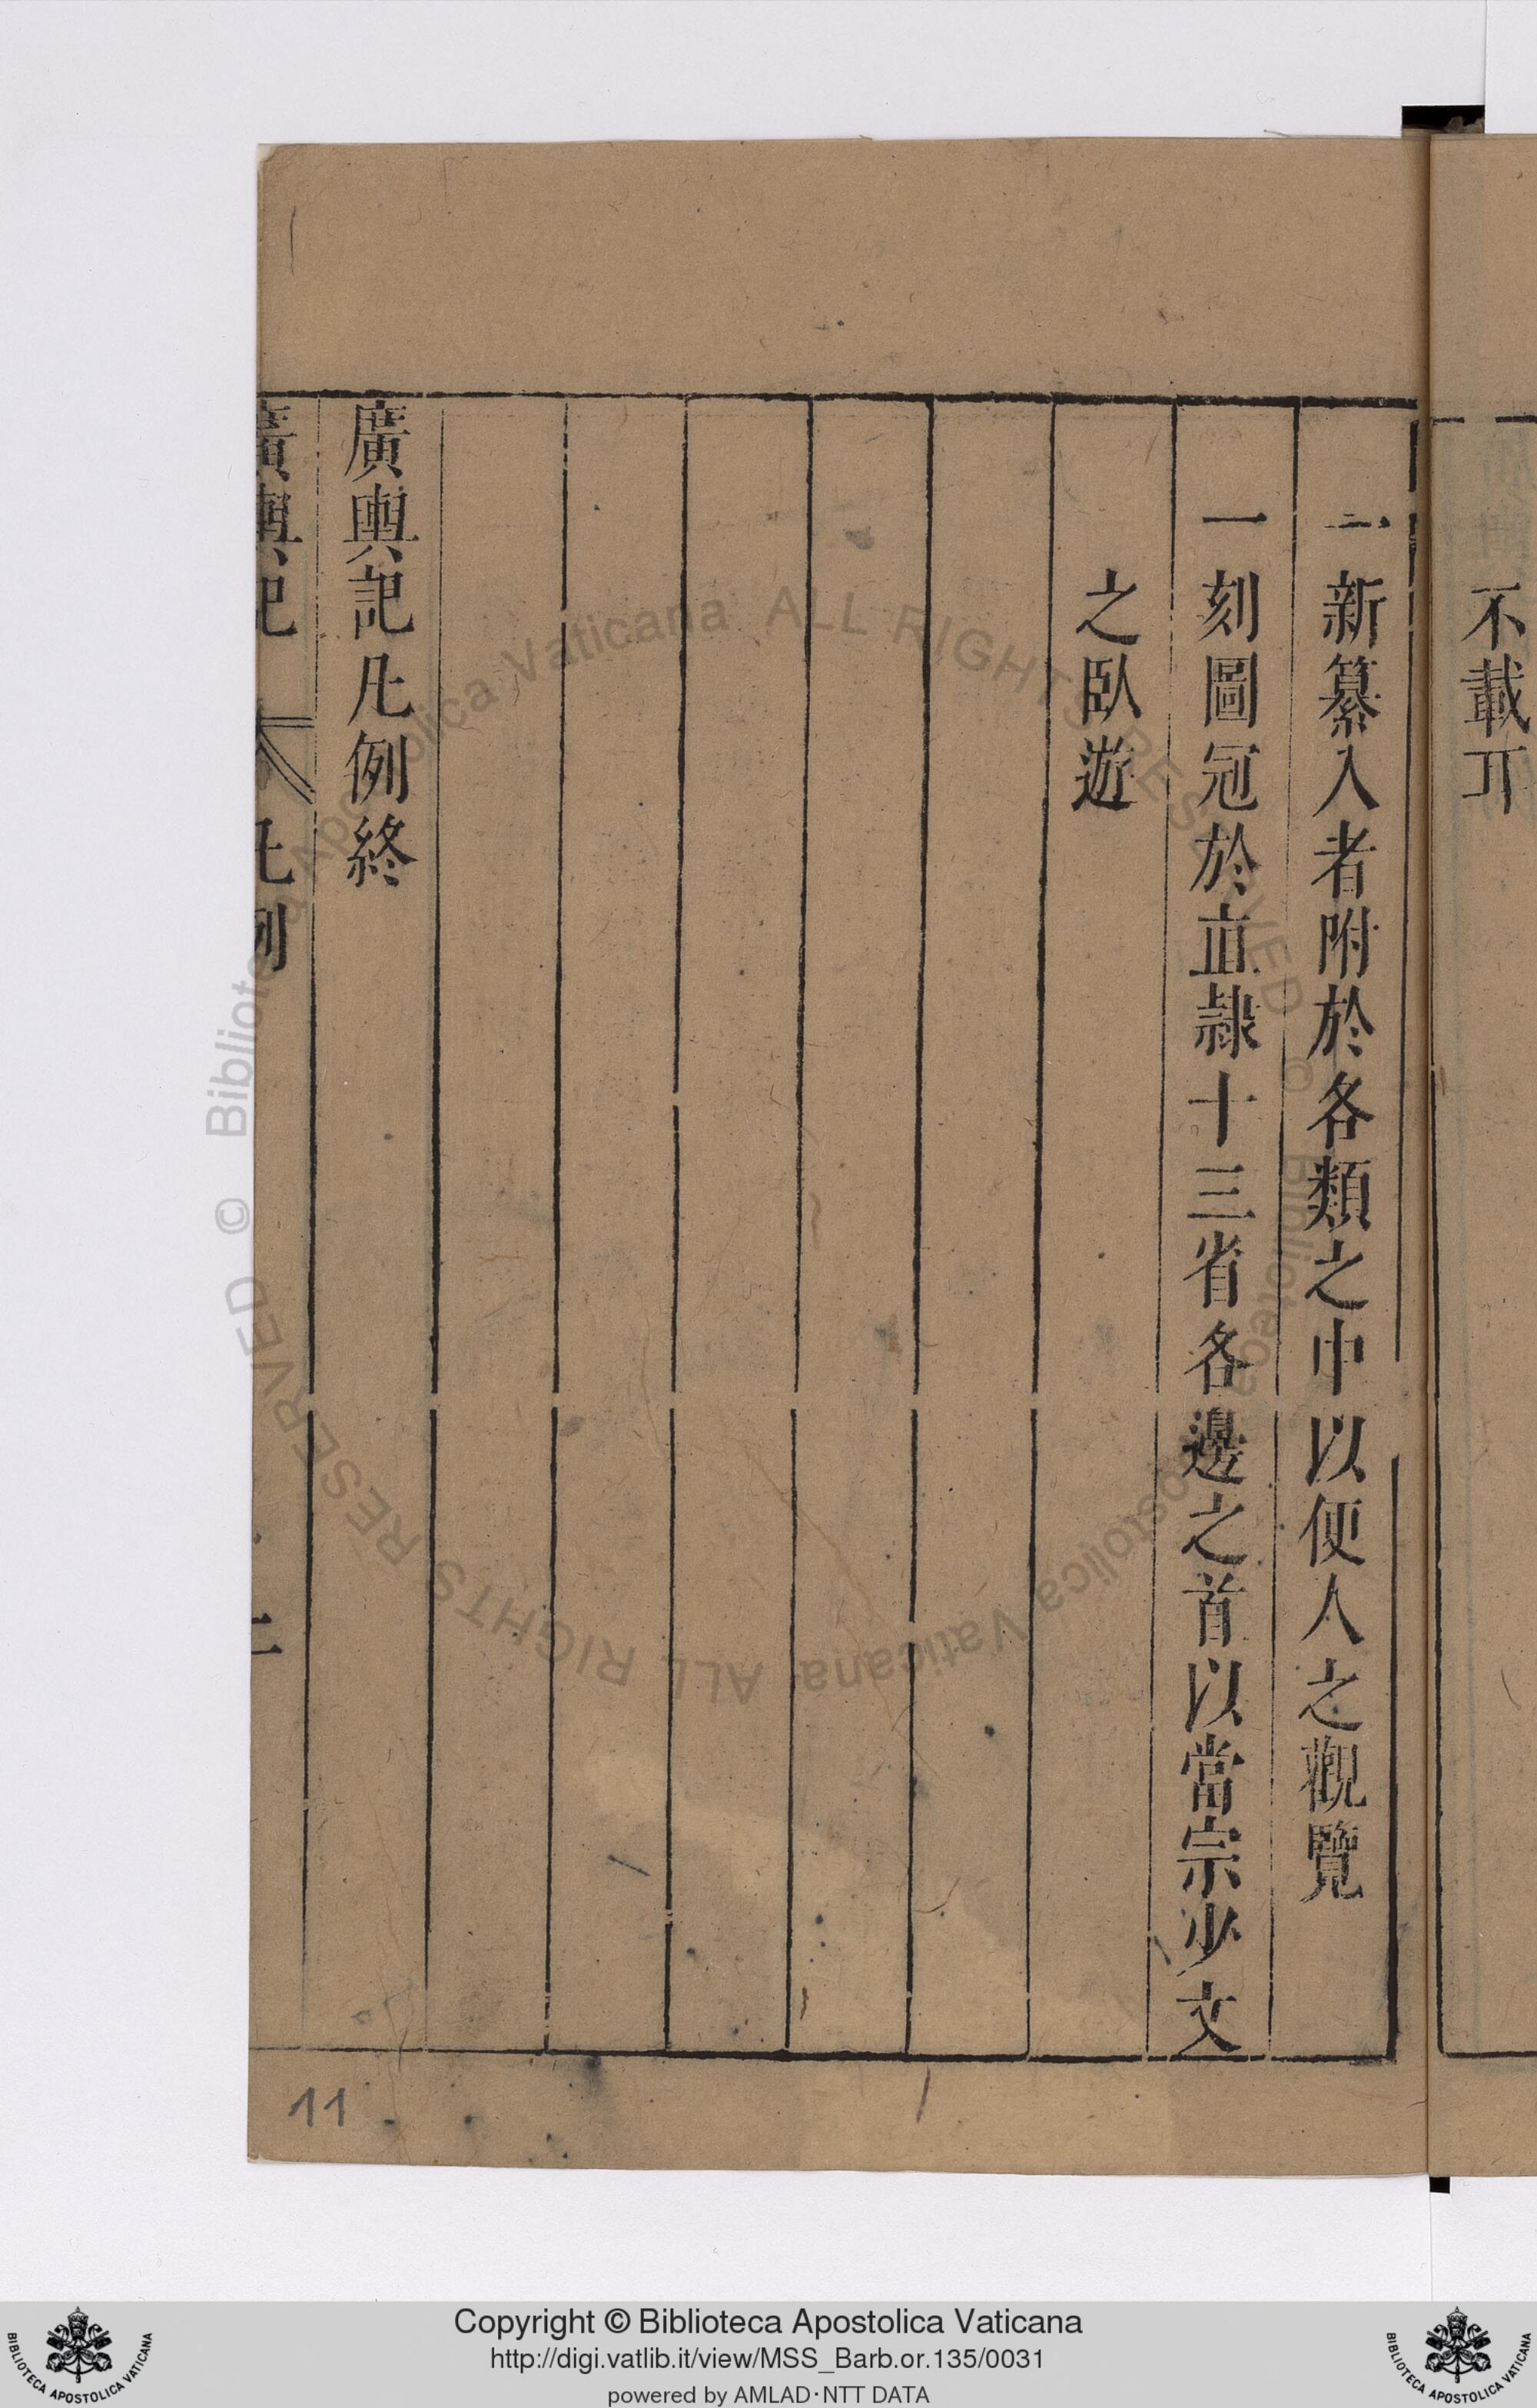 不載
一新纂入者附於各類之中以便人之觀覽
一刻圖冠於直隸十三省各邊之首以當宗少文
之臥遊
廣輿記凡例終
廣輿記
凡例
二
11
© Biblioteca Apostolica Vaticana ALL RIGHTS RESERVED © Biblioteca Apostolica Vaticana ALL RIGHTS RESERVED
Copyright © Biblioteca Apostolica Vaticana
http://digi.vatlib.it/view/MSS_Barb.or.135/0031
powered by AMLAD·NTT DATA
BIBLIOTECA APOSTOLICA VATICANA
BIBLIOTECA APOSTOLICA VATICANA